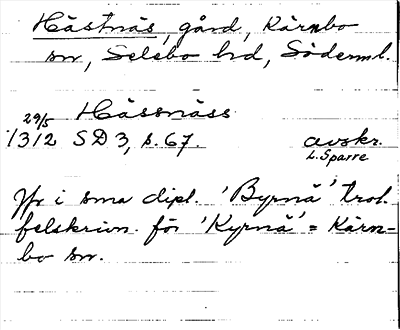 Hästnäs, gård, Kärnbo
sn, Selebo hd, Söderml.
Hässnäss
29/5
1312 SD 3, s. 67. avskr.
L. Sparre
Jfr i sma dipl. 'Byrnä' trol.
felskrivn. för 'Kyrnä' = Kärn-
bo sn.